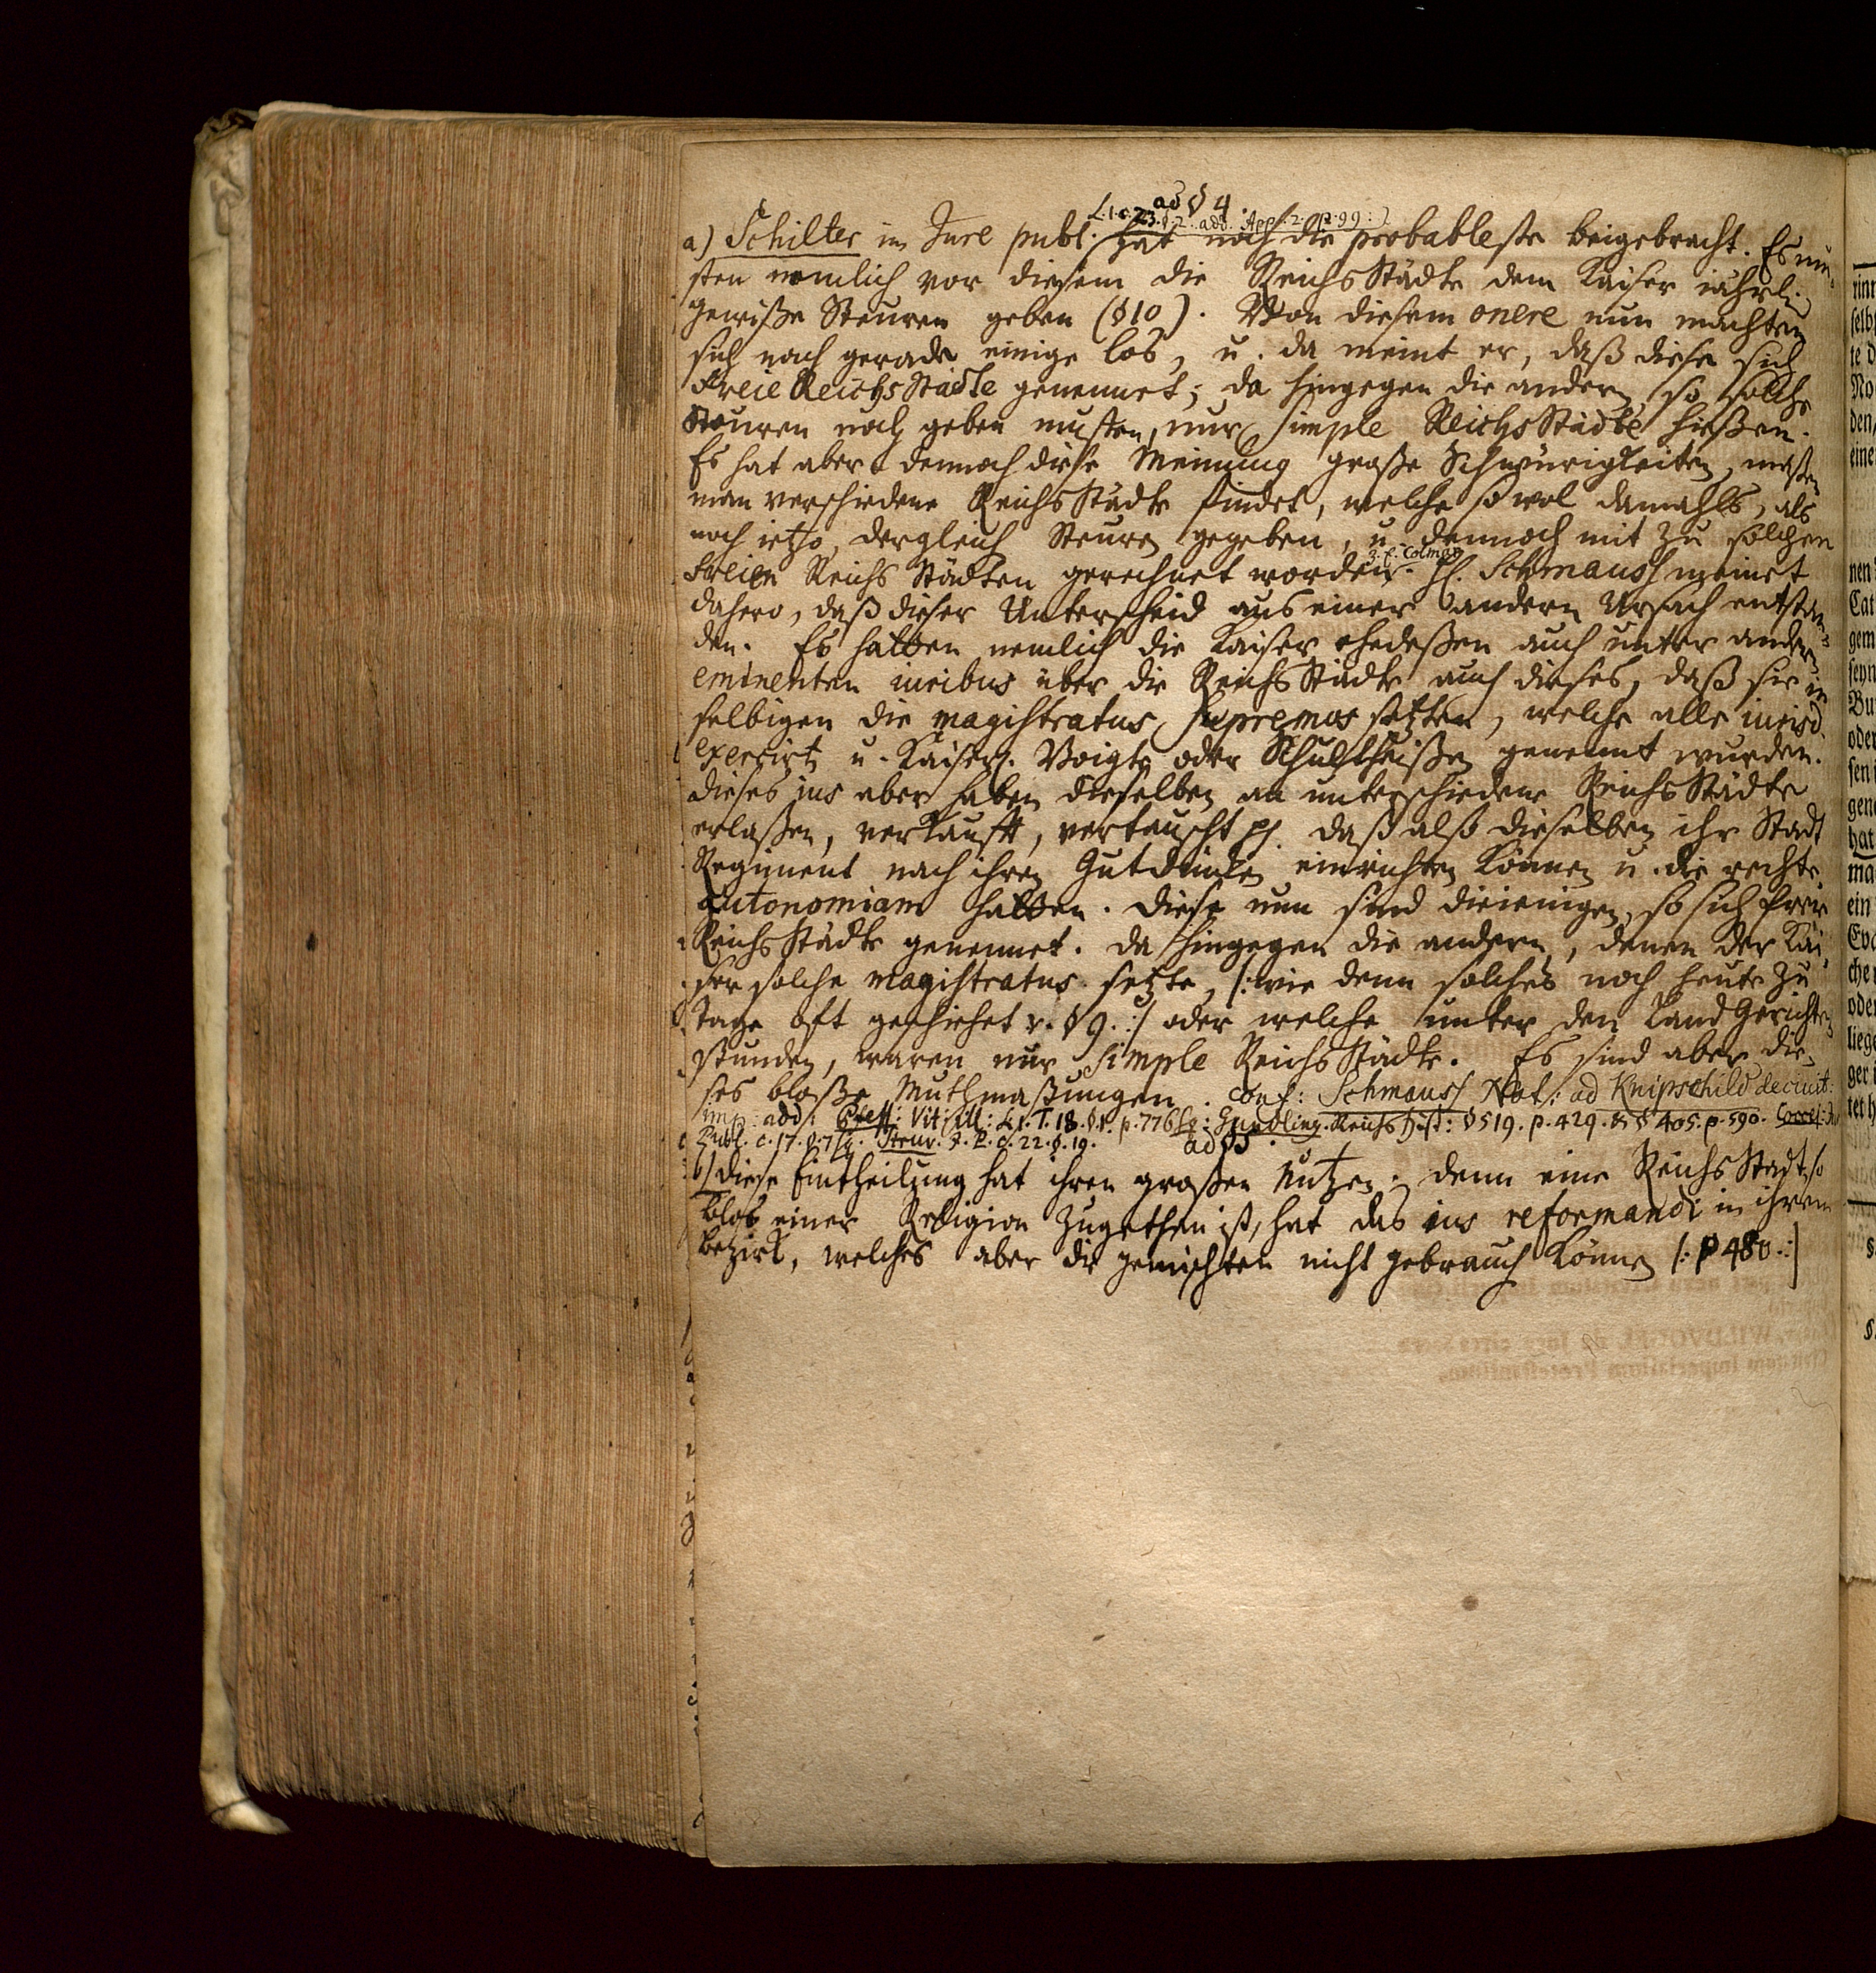 ad § 4
L. 1. c. 23. §. 2. add. App. 2. p. 99 :)
a) Schilter im Jure publ. hat noch die probableste beigebracht. Es mü-
sten nemlich vor diesem die ReichsStädte dem Kaiser jährl.
gewiße Steuren geben (§ 10). Von diesem onere nun machten
sich nach gerade einige los, u. da meint er, daß diese sich
Freie ReichsStädte genennet; da hingegen die andern, so solche
Steuren noch geben musten, nur simple ReichsStädte hießen.
Es hat aber dennoch diese Meinung große Schwürigkeiten, maßen
man verschiedene ReichsStädte findet, welche so wol damahls, als
noch ietzo, dergleich Steuren gegeben, u. dennoch mit zu solchen
z. E. Colmar
Freien Reichs Städten gerechnet worden. H. Schmauss meinet
dahero, daß dieser Unterscheid aus einer andern Ursach entstan-
den. Es hatten nemlich die Kaiser ehedeßen auch unter andern
eminenten iuribus über die ReichsStädte auch dieses, daß sie in
selbigen die magistratus supremos setzten, welche alle iurisd.
exercirt u. Kaiserl. Voigte oder Schultheißen genennt wurden.
dieses ius aber haben dieselben an unterschiedene ReichsStädte
erlaßen, verkaufft, vertauscht pp. daß alß dieselben ihr Stadt
Regiment nach ihren Gutdünken einrichten können u. die rechte
autonomiam hatten. Diese nun sind dieienigen, so sich freie
ReichsStädte genennet. da hingegen die andern, denen der Kai-
ser solche magistratus setzte, /: wie denn solches noch heute zu
Tage oft geschiehet v. § 9. :/ oder welche unter den LandGerichten
stunden, waren nur simple ReichsStädte. Es sind aber die-
ses bloße Muthmaßungen. Conf: Schmauss Not: ad Knipschild de civit:
imp. add: Pfeff: Vit: ill: L. 1. T. 18. §. 1. p. 776 sq: Gundling. Reichs Hist: § 519. p. 429. & § 405. p. 590. Coccej: Ju.
Publ. c. 17. §. 7 sq. Struv. J. P. c. 22. §. 19.
ad § 5.
b) diese Eintheilung hat ihren großen Nutzen; denn eine ReichsStadt, so
blos einer Religion zugethan ist, hat das ius reformandi in ihrem
bezirk, welches aber die gemischten nicht gebrauch können /: p 480 :/